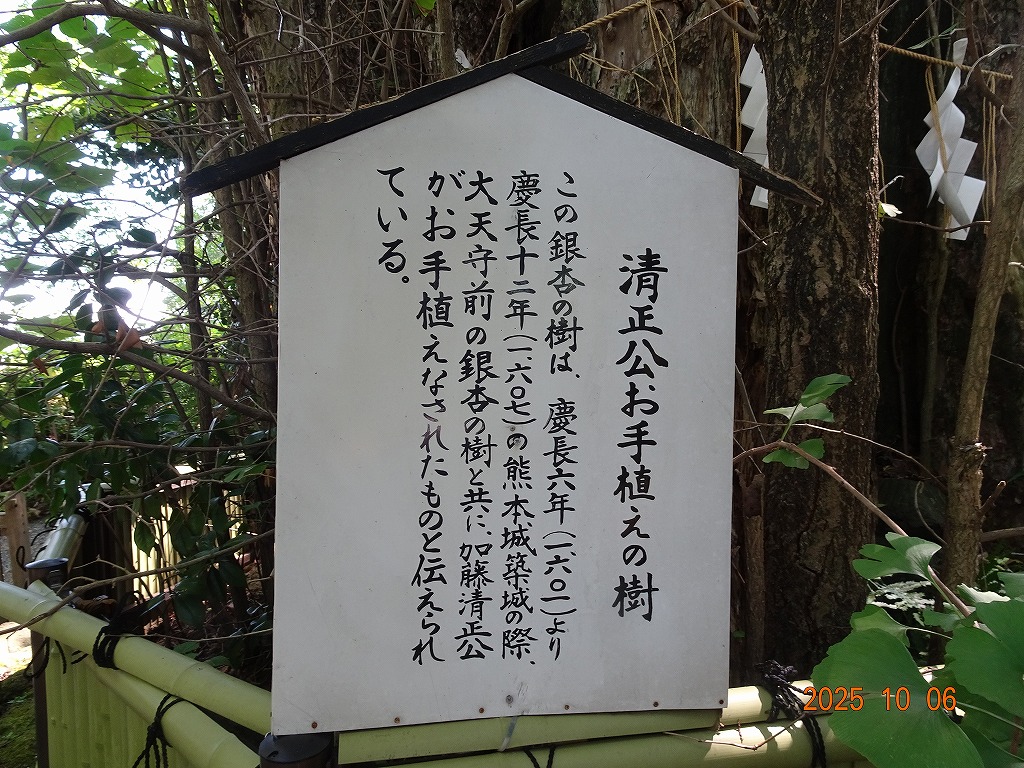 清正公お手植えの樹
この銀杏の樹は、慶長六年(一六〇一)より
慶長十二年(一六〇七)の熊本城築城の際、
大天守前の銀杏の樹と共に、加藤清正公
がお手植えなされたものと伝えられ
ている。
2025 10 06